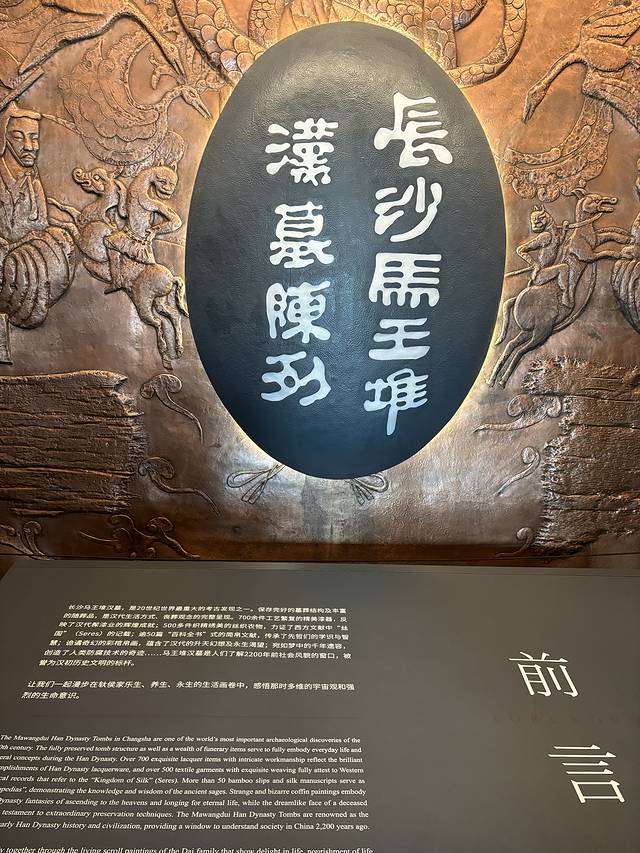 長沙馬王堆
漢墓陳列
长沙马王堆汉墓，是20世纪世界最重大的考古发现之一。保存完好的墓葬结构及丰富
的随葬品，是汉代生活方式、丧葬观念的完整呈现。700余件工艺繁复的精美漆器，反
映了汉代髹漆业的辉煌成就；500多件织精绣美的丝织衣物，力证了西方文献中“丝
国”（Seres）的记载；逾50篇“百科全书”式的简帛文献，传承了先哲们的学识与智
慧；诡谲奇幻的彩棺帛画，蕴含了汉代的升天幻想及永生渴望；宛如梦中的千年遗容，
创造了人类防腐技术的奇迹……马王堆汉墓是人们了解2200年前社会风貌的窗口，被
誉为汉初历史文明的标杆。
让我们一起漫步在轪侯家乐生、养生、永生的生活画卷中，感悟那时多维的宇宙观和强
烈的生命意识。
前言
The Mawangdui Han Dynasty Tombs in Changsha are one of the world's most important archaeological discoveries of the
0th century. The fully preserved tomb structure as well as a wealth of funerary items serve to fully embody everyday life and
eral concepts during the Han Dynasty. Over 700 exquisite lacquer items with intricate workmanship reflect the brilliant
mplishments of Han Dynasty lacquerware, and over 500 textile garments with exquisite weaving fully attest to Western
cal records that refer to the “Kingdom of Silk” (Seres). More than 50 bamboo slips and silk manuscripts serve as
opedias”, demonstrating the knowledge and wisdom of the ancient sages. Strange and bizarre coffin paintings embody
ynasty fantasies of ascending to the heavens and longing for eternal life, while the dreamlike face of a deceased
testament to extraordinary preservation techniques. The Mawangdui Han Dynasty Tombs are renowned as the
early Han Dynasty history and civilization, providing a window to understand society in China 2,200 years ago.
together through the living scroll paintings of the Dai family that show delight in life, nourishment of life